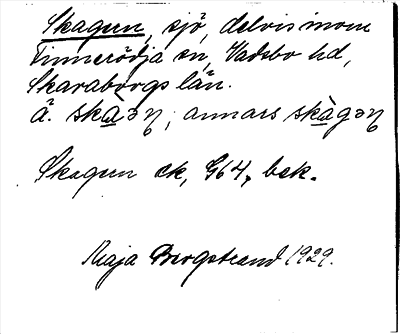 Skagen, sjö, delvis inom
Finnerödja sn, Vadsbo hd,
Skaraborgs län.
å. skàəɳ, annars skàgəɳ
Skagen ek, G64, bek.
Maja Bergstrand 1929.